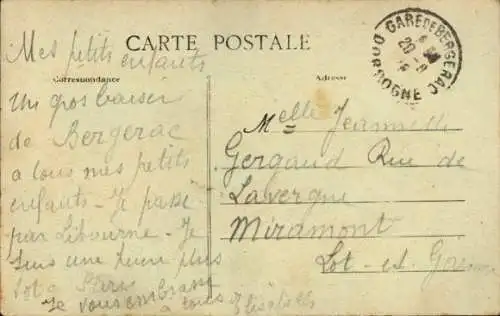 CARTE POSTALE
Correspondance
Adresse
GARE DE BERGERAC
DORDOGNE
20 - 8
Mes petits enfants
Un gros baiser
de Bergerac
a tous mes petits
enfants - Je passe
par Libourne - Je
suis une heure plus
tot a Paris
Je vous embrasse
a tous
Melle Jeannette
Gergaud Rue de
Lavergne
Miramont
Lot - et